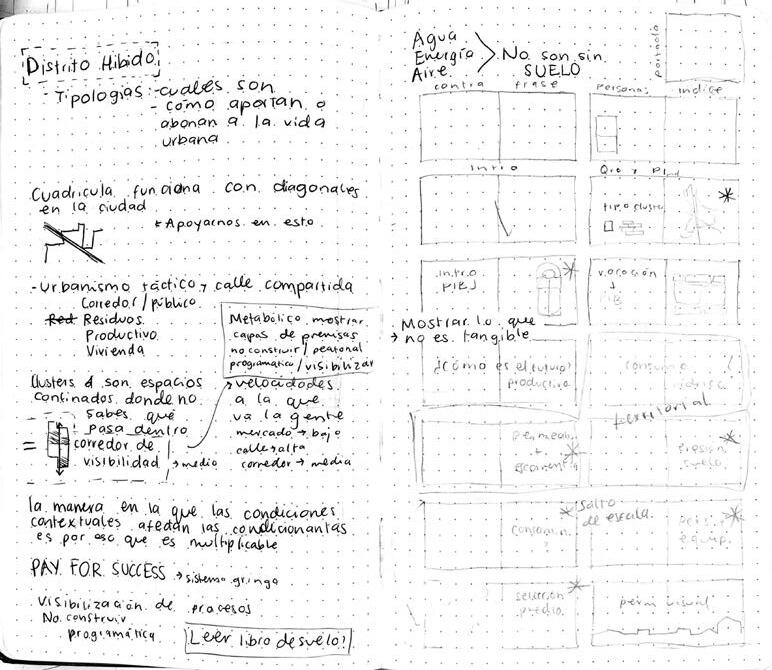 Distrito Hibido
- Tipologías: - cuales son
- como aportan o
abonan a la vida
urbana
Cuadricula funciona con diagonales
en la ciudad
* Apoyarnos en esto
- Urbanismo táctico → calle compartida
Corredor / público
Red Residuos
Productivo
Vivienda
Metabólico mostrar
capas de premisas
no construir / peatonal
programático / visibilizar
Clusters son espacios
confinados donde no
sabes que
pasa dentro
= corredor de
visibilidad → medio
→ velocidades
a la que
va la gente
mercado → bajo
calle → alta
corredor → media
la manera en la que las condiciones
contextuales afectan las condicionantas
es por eso que es multiplicable
PAY FOR SUCCESS → sistema gringo
Visibilización de procesos
No construir
programática
Leer libro de suelo!
Agua
Energía
Aire
No son sin
SUELO
portada
contra frase
Personas indice
Intro
Qro y PIJ
tipo cluster
intro
PIEJ
vocación
Mostrar lo que
→ no es tangible
¿Cómo es el futuro?
productivo
consumo
territorial
Salto
de escala
equip.
selección
predio.
perfil visual